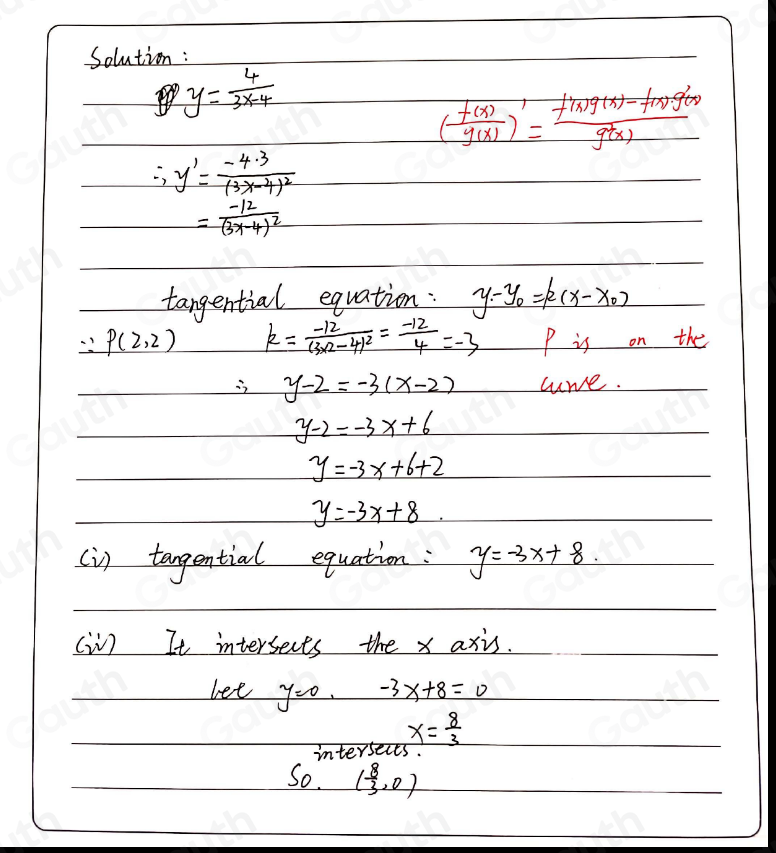 Solution :
y = 4/(3x-4)
(f(x)/g(x))' = (f'(x)g(x) - f(x)·g'(x))/g²(x)
∴ y' = (-4·3)/(3x-4)²
= -12/(3x-4)²
tangential equation : y-y₀ = k(x-x₀)
∵ P(2,2) k = -12/(3×2-4)² = -12/4 = -3 P is on the
∴ y-2 = -3(x-2) curve.
y-2 = -3x+6
y = -3x+6+2
y = -3x+8.
(i) tangential equation : y = -3x+8.
(ii) It intersects the x axis.
let y=0. -3x+8 = 0
x = 8/3
intersects.
So. (8/3, 0)